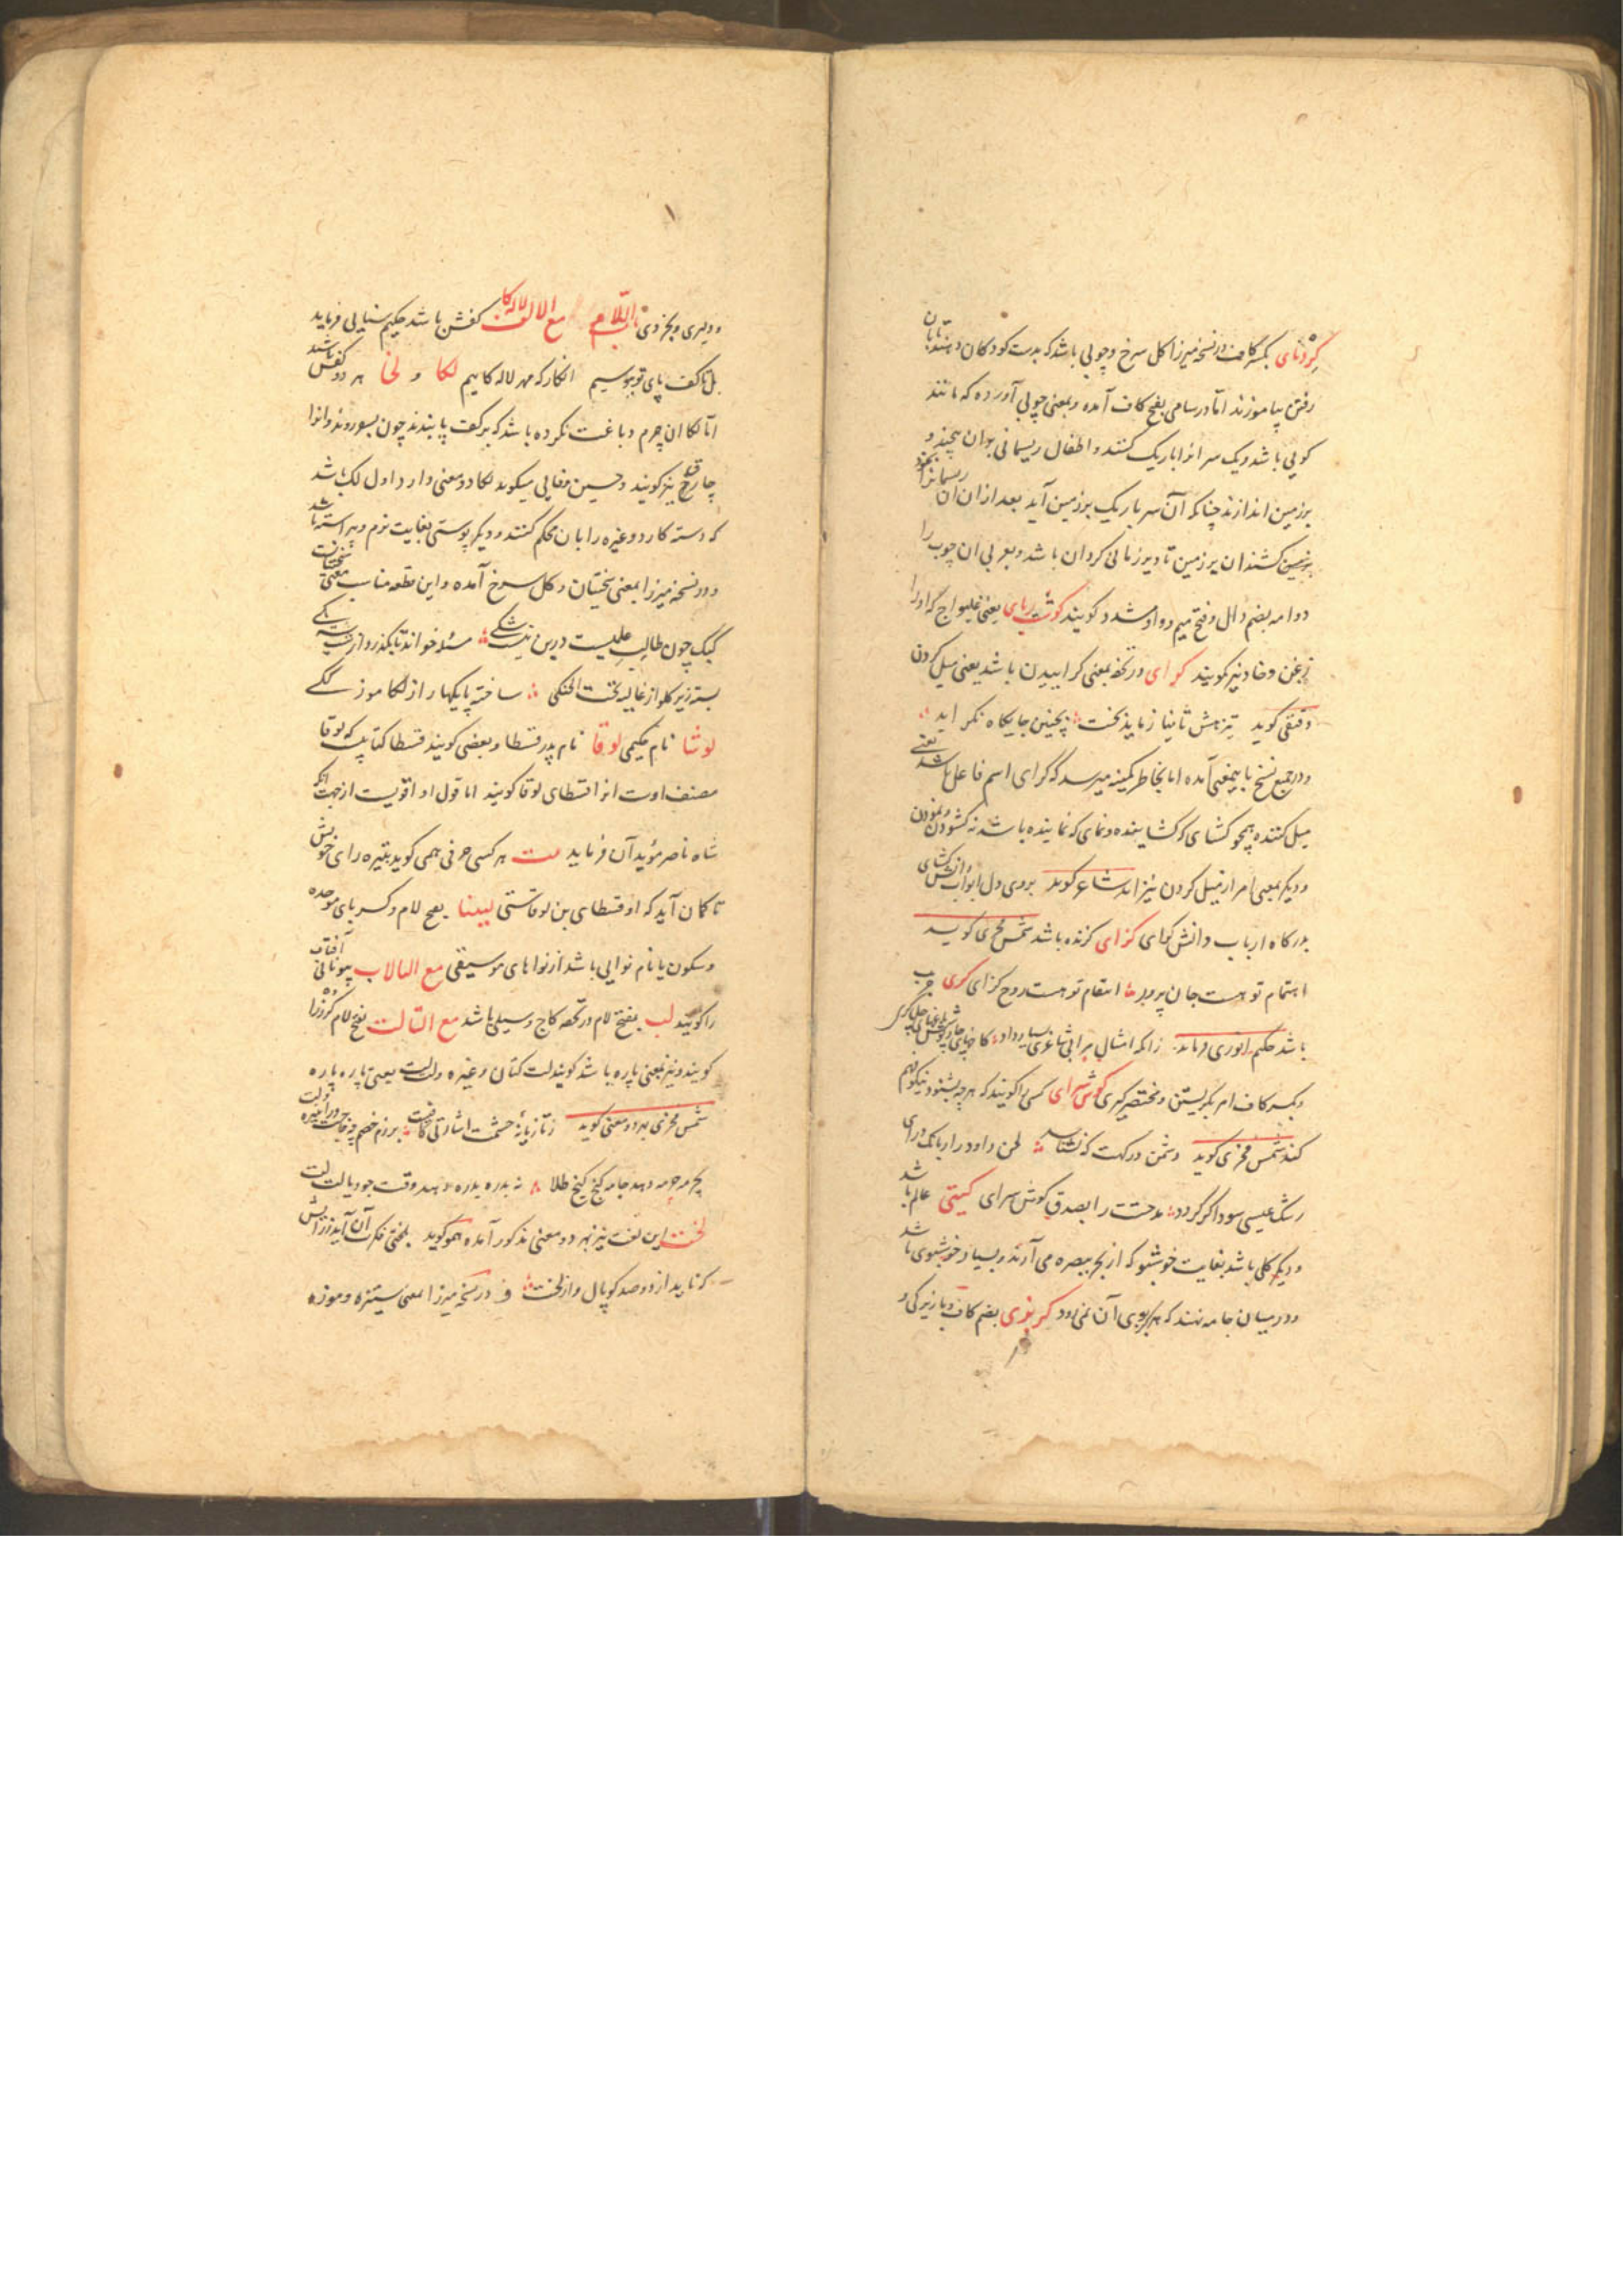 کردنای بکسر کاف در نسخه میرزا کل سرخ و چوبی باشد که بدست کودکان دهند تا بان
رفتن بیاموزند اما در سامی بفتح کاف آمده و بمعنی چوبی آورده که مانند
کویی باشد و یک سر انرا باریک کنند و اطفال ریسمانی بران پیچند و
برزمین اندازند چنانکه آن سر باریک برزمین آید بعد ازان ان ریسمانرا
کشند ان برزمین تا دیر زمانی کردان باشد و بعربی ان چوب را
دوامه بضم دال و فتح میم و واو مشدد کویند کوشت ربای یعنی غلیواج که اورا
زغن و خاد نیز کویند کرای در تحفه بمعنی کراییدن باشد یعنی میل کردن
دقیقی کوید تیز هش تا نیازماید بخت بچنین جایکاه نکراید
و در جمیع نسخ باینمعنی آمده اما بخاطر کمینه میرسد که کرای اسم فاعل باشد یعنی
میل کننده همچو کشای که کشاینده و نمای که نماینده باشد نه کشودن و نمودن
و دیکر بمعنی امر از میل کردن نیز اند شاعر کوید بروی دل ابواب دانش کشای
بدرکاه ارباب دانش کرای کزای کزنده باشد شمس فخری کوید
اهتمام تو هست جان پرور انتقام تو هست روح کزای کری جرب
باشد حکیم انوری فرماید زانکه امثال مرا بی شاعری بسیار داد
و بکسر کاف امر بکریستن و مختصر کیری کوش سرای کسی را کویند که هرچه بشنود نیکو فهم
کند شمس فخری کوید دشمن درکهت که نشناسد لحن داود را ز بانک درای
رشک عیسی سوداکر کردد مدحتت را بصدق کوش سرای کیتی عالم باشد
و دیکر کلی باشد بغایت خوشبو که از بحر ببصره می آرند و بسیار خوشبوی باشد
و در میان جامه نهند که بوی آن نمیرود کربزی بضم کاف و با زیرکی و
و دلیری و بخردی باب اللام مع الالف لالکا کفش باشد حکیم سنایی فرماید
تا کف پای تو ببوسیم انکار که مهر لالکاییم لکا و لخا هر دو کفش باشد
اما لکا ان چرم دباغت نکرده باشد که برکف پا بندند چون بسفر روند و انرا
چارق نیز کویند و حسین وفایی میکوید لکا دو معنی دارد اول لک باشد
که دسته کارد و غیره را بان محکم کنند و دیکر پوستی بغایت نرم و پیراسته باشد
و در نسخه میرزا بمعنی سختیان و کل سرخ آمده و این قطعه مناسب معنی سختیانست
کبک چون طالب علمیست درین نیست شکی مسئله خواند تا بکذرد از شب سه یکی
بسته زیر کلو از غالیه تحت الحنکی ساخته پایکها را ز لکا موزککی
لوشا نام حکیمی لوقا نام پدر قسطا و بعضی کویند قسطا کتابیست که لوقا
مصنف اوست انرا قسطای لوقا کویند اما قول او اقویست از جهت انکه
شاه ناصر مؤید آن فرماید بیت هر کسی حرفی همی کوید بتیره رای خویش
تا کمان آید که او قسطای بن لوقاستی لبینا بفتح لام و کسر بای موحده
و سکون یا نام نوایی باشد از نواهای موسیقی مع الباء لاب بیونانی آفتاب
را کویند لب بفتح لام در تحفه کاج و سیلی باشد مع التا لت بفتح لام کرز را
کویند و نیز بمعنی پاره باشد کویند لت کتان و غیره و لت لت یعنی پاره پاره
شمس فخری بهر دو معنی کوید ز تازیانه حشمت اشارتی کافیست برزم خصم چه حاجت
بچرمه چرمه دهد جامه کنج کنج طلا نه بدره بدره دهد وقت جود یا لت لت
لخت این لغت نیز بهر دو معنی مذکور آمده هموکوید
که ناید از دو صد کوپال و از لخت و در نسخه میرزا بمعنی ستیزه و موزه